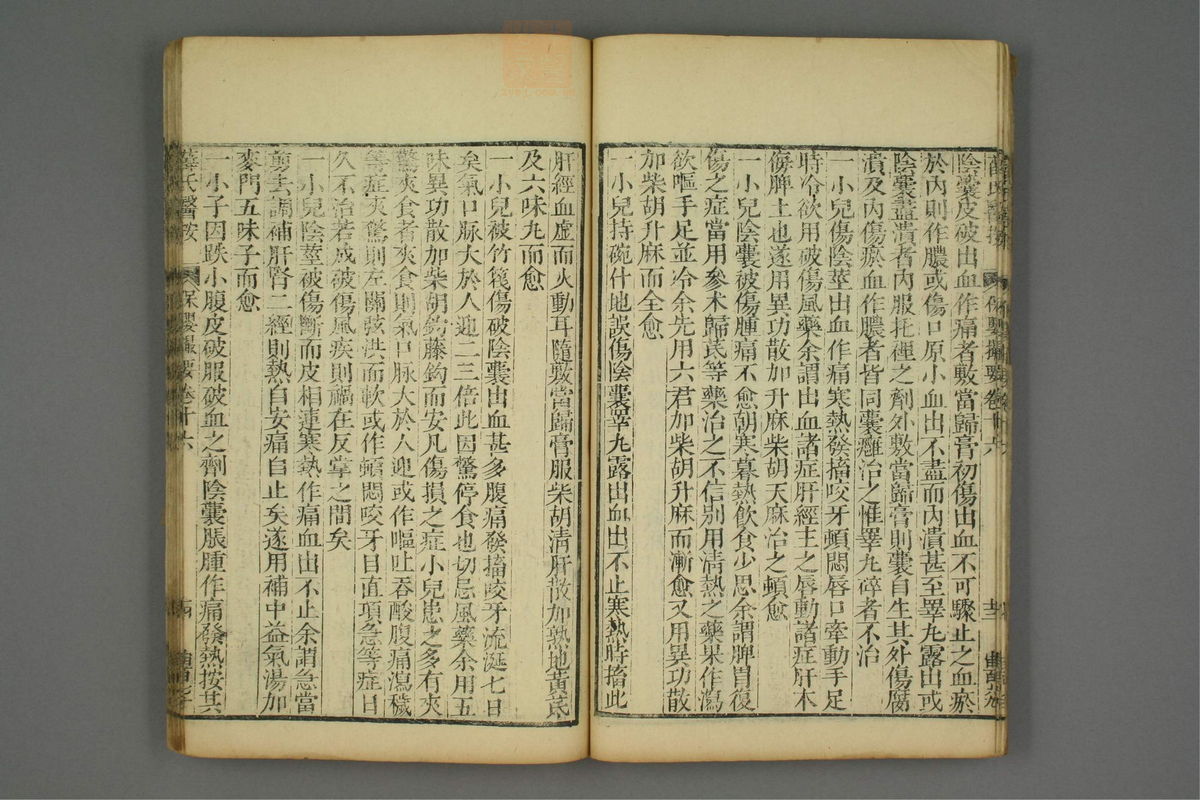 薛氏醫按 保嬰撮要卷十六
陰囊皮破出血作痛者敷當歸膏初傷出血不可驟止之血瘀
於内則作膿或傷口原小血出不盡而内潰甚至睪丸露出或
陰囊盡潰者内服托裡之劑外敷當歸膏則囊自生其外傷腐
潰及内傷瘀血作膿者皆同囊癰治之惟睪丸碎者不治
一小兒傷陰莖出血作痛寒熱發搐咬牙頓悶唇口牽動手足
時冷欲用破傷風藥余謂出血諸症肝經主之唇動諸症肝木
侮脾土也遂用異功散加升麻柴胡天麻治之頓愈
一小兒陰囊被傷腫痛不愈朝寒暮熱飲食少思余謂脾胃復
傷之症當用參术歸芪等藥治之不信别用清熱之藥果作瀉
欲嘔手足並冷余先用六君加柴胡升麻而漸愈又用異功散
加柴胡升麻而全愈
一小兒持碗什地誤傷陰囊睪丸露出血出不止寒熱時搐此
肝經血虛而火動耳隨敷當歸膏服柴胡清肝散加熟地黄芪
及六味丸而愈
一小兒被竹篾傷破陰囊出血甚多腹痛發搐咬牙流涎七日
矣氣口脉大於人迎二三倍此因驚停食也切忌風藥余用五
味異功散加柴胡鈎藤鈎而安凡傷損之症小兒患之多有夾
驚夾食者夾食則氣口脉大於人迎或作嘔吐吞酸腹痛瀉穢
等症夾驚則左關弦洪而軟或作頓悶咬牙目直項急等症日
久不治若成破傷風疾則禍在反掌之間矣
一小兒陰莖被傷斷而皮相連寒熱作痛血出不止余謂急當
剪去調補肝腎二經則熱自安痛自止矣遂用補中益氣湯加
麥門五味子而愈
一小子因跌小腹皮破服破血之劑陰囊脹腫作痛發熱按其
薛氏醫按 保嬰撮要卷十六